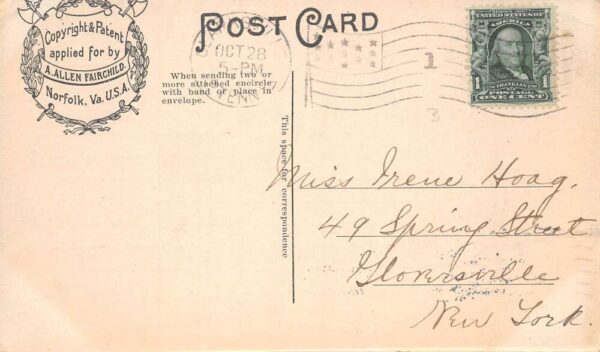 POST CARD
Copyright & Patent
applied for by
A. ALLEN FAIRCHILD
Norfolk, Va. U.S.A.
OCT 28
5-PM
TENN
When sending two or
more attached encircle
with band or place in
envelope.
This space for correspondence
1
3
SERIES 1902
UNITED STATES OF
AMERICA
FRANKLIN
POSTAGE
1 ONE CENT 1
Miss Irene Hoag.
49 Spring Street
Gloversville
New York.